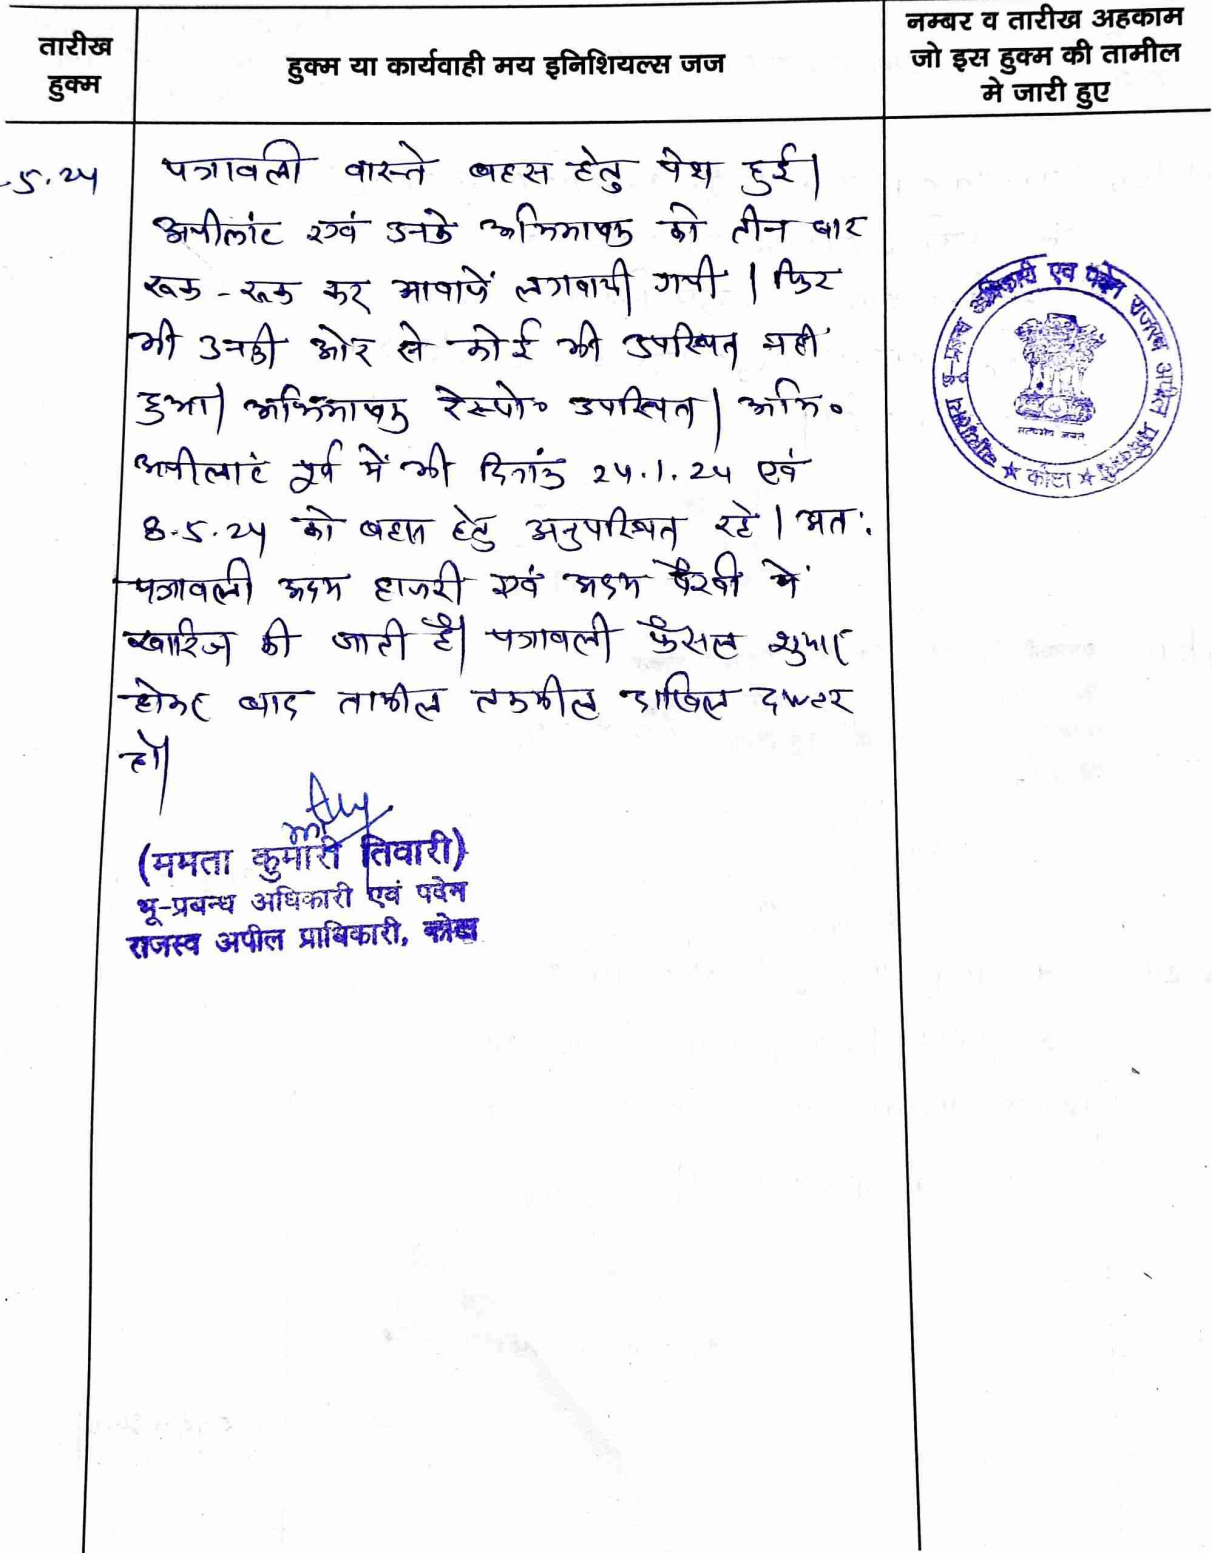 तारीख
हुक्म
हुक्म या कार्यवाही मय इनिशियल्स जज
नम्बर व तारीख अहकाम
जो इस हुक्म की तामील
मे जारी हुए
.5.24
पत्रावली वास्ते बहस हेतु पेश हुई।
अपीलांट एवं उनके अभिभाषक को तीन बार
रूक-रूक कर आवाजें लगवायी गयी। फिर
भी उनकी ओर से कोई भी उपस्थित नही
हुआ। अभिभाषक रेस्पो० उपस्थित। अभि०
अपीलांट पूर्व में भी दिनांक 24.1.24 एवं
8.5.24 को बहस हेतु अनुपस्थित रहे। अत:
पत्रावली अदम हाजरी एवं अदम पैरवी में
खारिज की जाती है। पत्रावली फैसल शुमार
होकर बाद तामील तकमील दाखिल दफ्तर
हो।
(ममता कुमारी तिवारी)
भू-प्रबन्ध अधिकारी एवं पदेन
राजस्व अपील प्राधिकारी, कोटा
भू-प्रबन्ध अधिकारी एवं पदेन राजस्व अपील प्राधिकारी
★ कोटा ★
सत्यमेव जयते